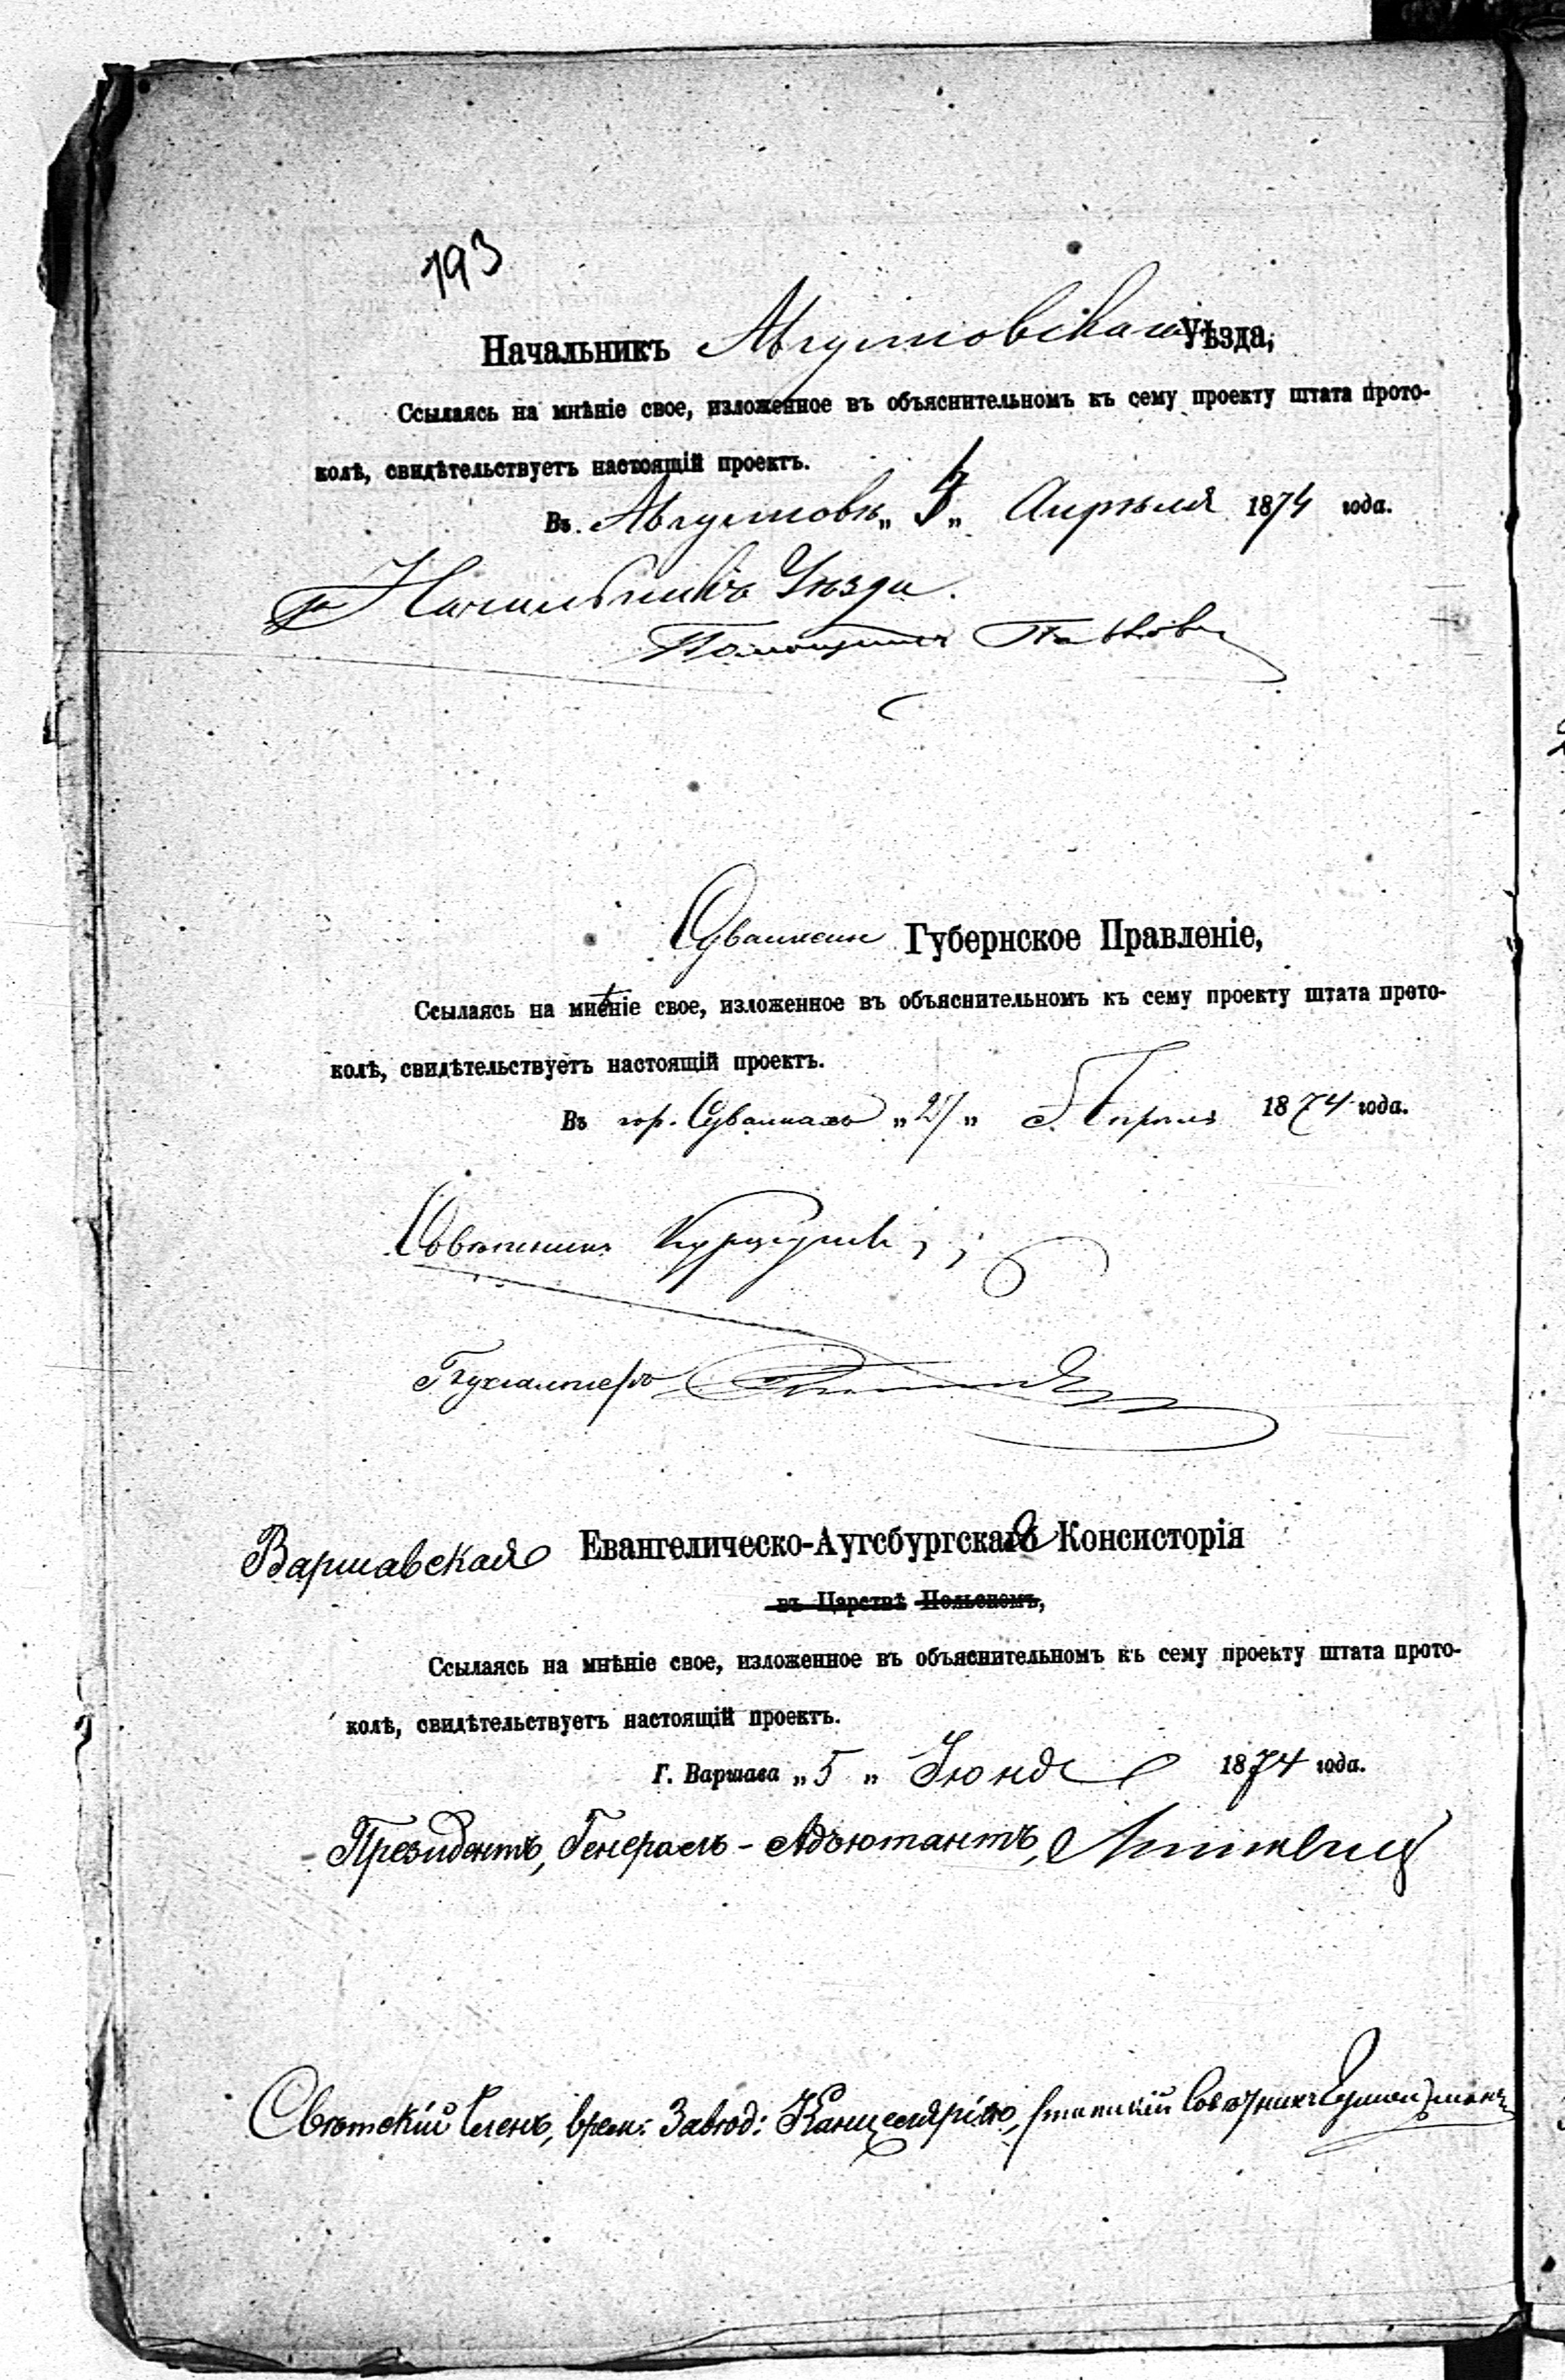 193
Начальникъ Августовскаго Уѣзда,
Ссылаясь на мнѣніе свое, изложенное въ объяснительномъ къ сему проекту штата прото-
колѣ, свидѣтельствуетъ настоящій проектъ.
Въ Августовѣ „ „ Апрѣля 1874 года.
Начальникъ Уѣзда
Помощникъ
Сувалкское Губернское Правленіе,
Ссылаясь на мнѣніе свое, изложенное въ объяснительномъ къ сему проекту штата прото-
колѣ, свидѣтельствуетъ настоящій проектъ.
Въ гор. Сувалкахъ „27„ Апрѣля 1874 года.
Совѣтникъ
Бухгалтеръ
Варшавская Евангелическо-Аугсбургская Консисторія
въ Царствѣ Польскомъ,
Ссылаясь на мнѣніе свое, изложенное въ объяснительномъ къ сему проекту штата прото-
колѣ, свидѣтельствуетъ настоящій проектъ.
Г. Варшава „5„ Іюня 1874 года.
Президентъ, Генералъ-Адъютантъ,
Свѣтскій Членъ, врем: Завѣд: Канцеляріею, Статскій Совѣтникъ